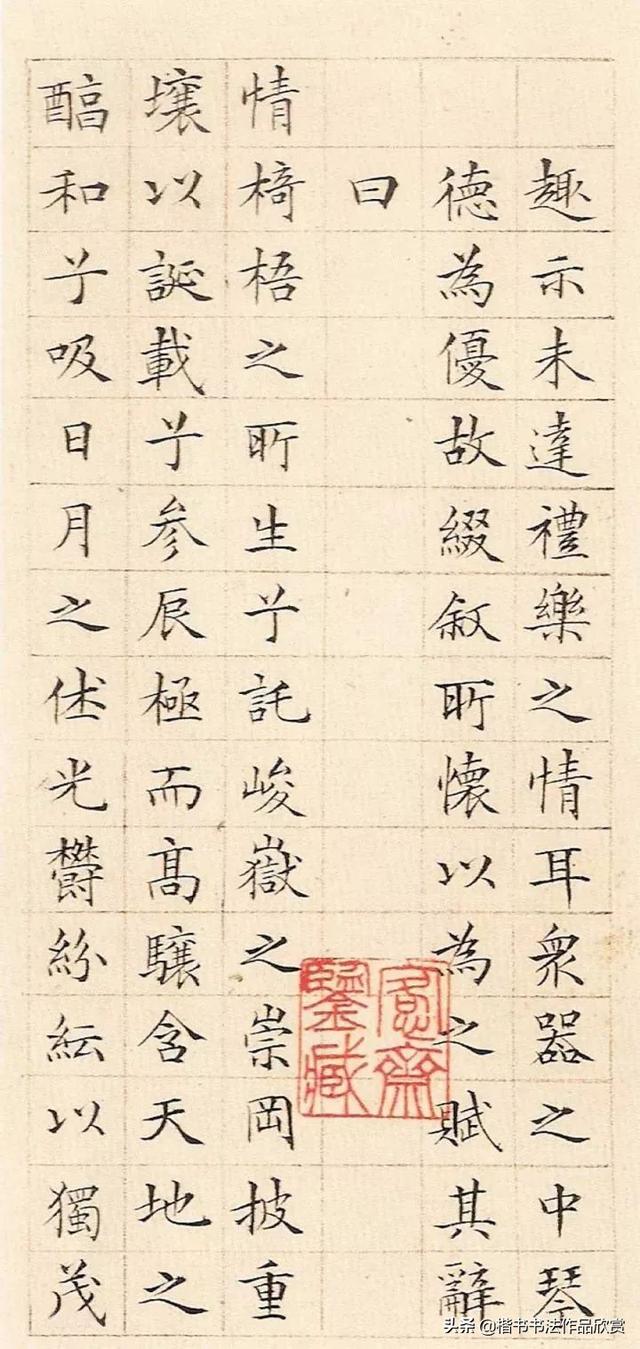 趣示未達禮樂之情耳衆器之中琴
德為優故綴叙所懷以為之賦其辭
曰
情椅梧之所生兮託峻嶽之崇岡披重
壤以誕載兮参辰極而髙驤含天地之
醕和兮吸日月之休光鬱紛紜以獨茂
愙齋
鑒藏
头条 @楷书书法作品欣赏